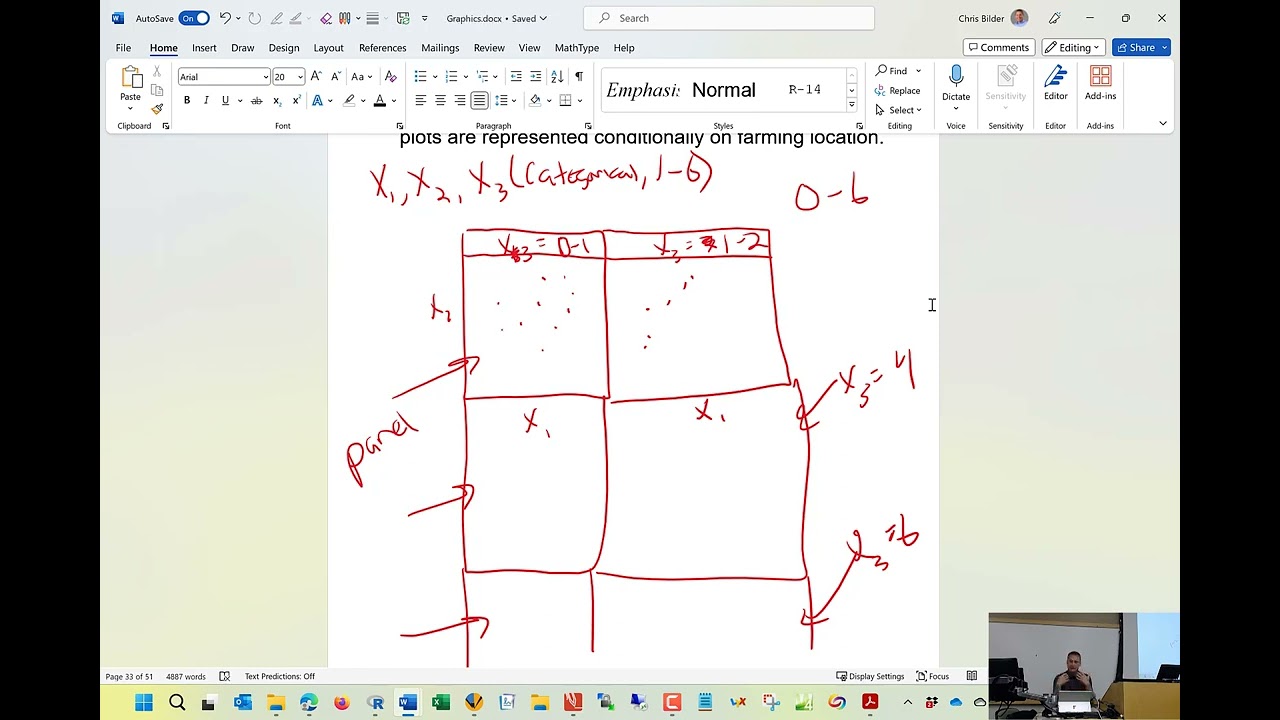 AutoSave On Graphics.docx • Saved Search Chris Bilder
File Home Insert Draw Design Layout References Mailings Review View MathType Help Comments Editing Share
Paste Arial 20 Aa Emphasis Normal R-14 Find Replace Select Dictate Sensitivity Editor Add-ins
Clipboard Font Paragraph Styles Editing Voice Sensitivity Editor Add-ins
plots are represented conditionally on farming location.
X1, X2, X3 (Categorical, 1-6)
0-6
X3 = 0-1 X3 = 1-2
X2
X3 = 4
X1 X1
panel
X3 = 6
Page 33 of 51 4887 words Text Predictions: Off Display Settings Focus